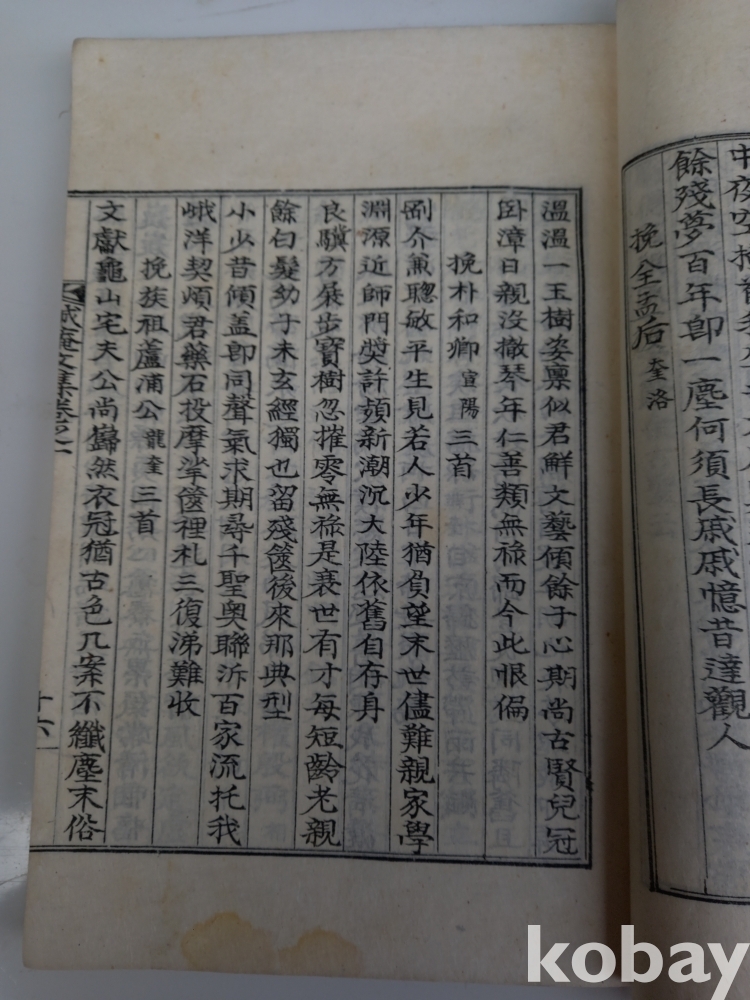 餘殘夢百年卽一塵何須長戚戚憶昔達觀人
挽全孟后 奎洛
溫溫一玉樹姿稟似君鮮文藝傾餘子心期尚古賢兒冠
臥漳日親沒撤琴年仁善類無祿而今此恨偏
挽朴和卿 宣陽 三首
剛介兼聰敏平生見若人少年猶負望末世儘難親家學
淵源近師門奬許頻新潮沉大陸依舊自存身
良驥方展步寶樹忽摧零無祿是衰世有才每短齡老親
餘白髮幼子未玄經獨也留殘篋後來那典型
小少昔傾盖卽同聲氣求期尋千聖奧聯泝百家流托我
峨洋契煩君藥石投摩挲篋裡札三復涕難收
挽族祖蘆浦公 龍奎 三首
文獻龜山宅夫公尚巋然衣冠猶古色几案不纖塵末俗
庵文集卷之一
十六
kobay